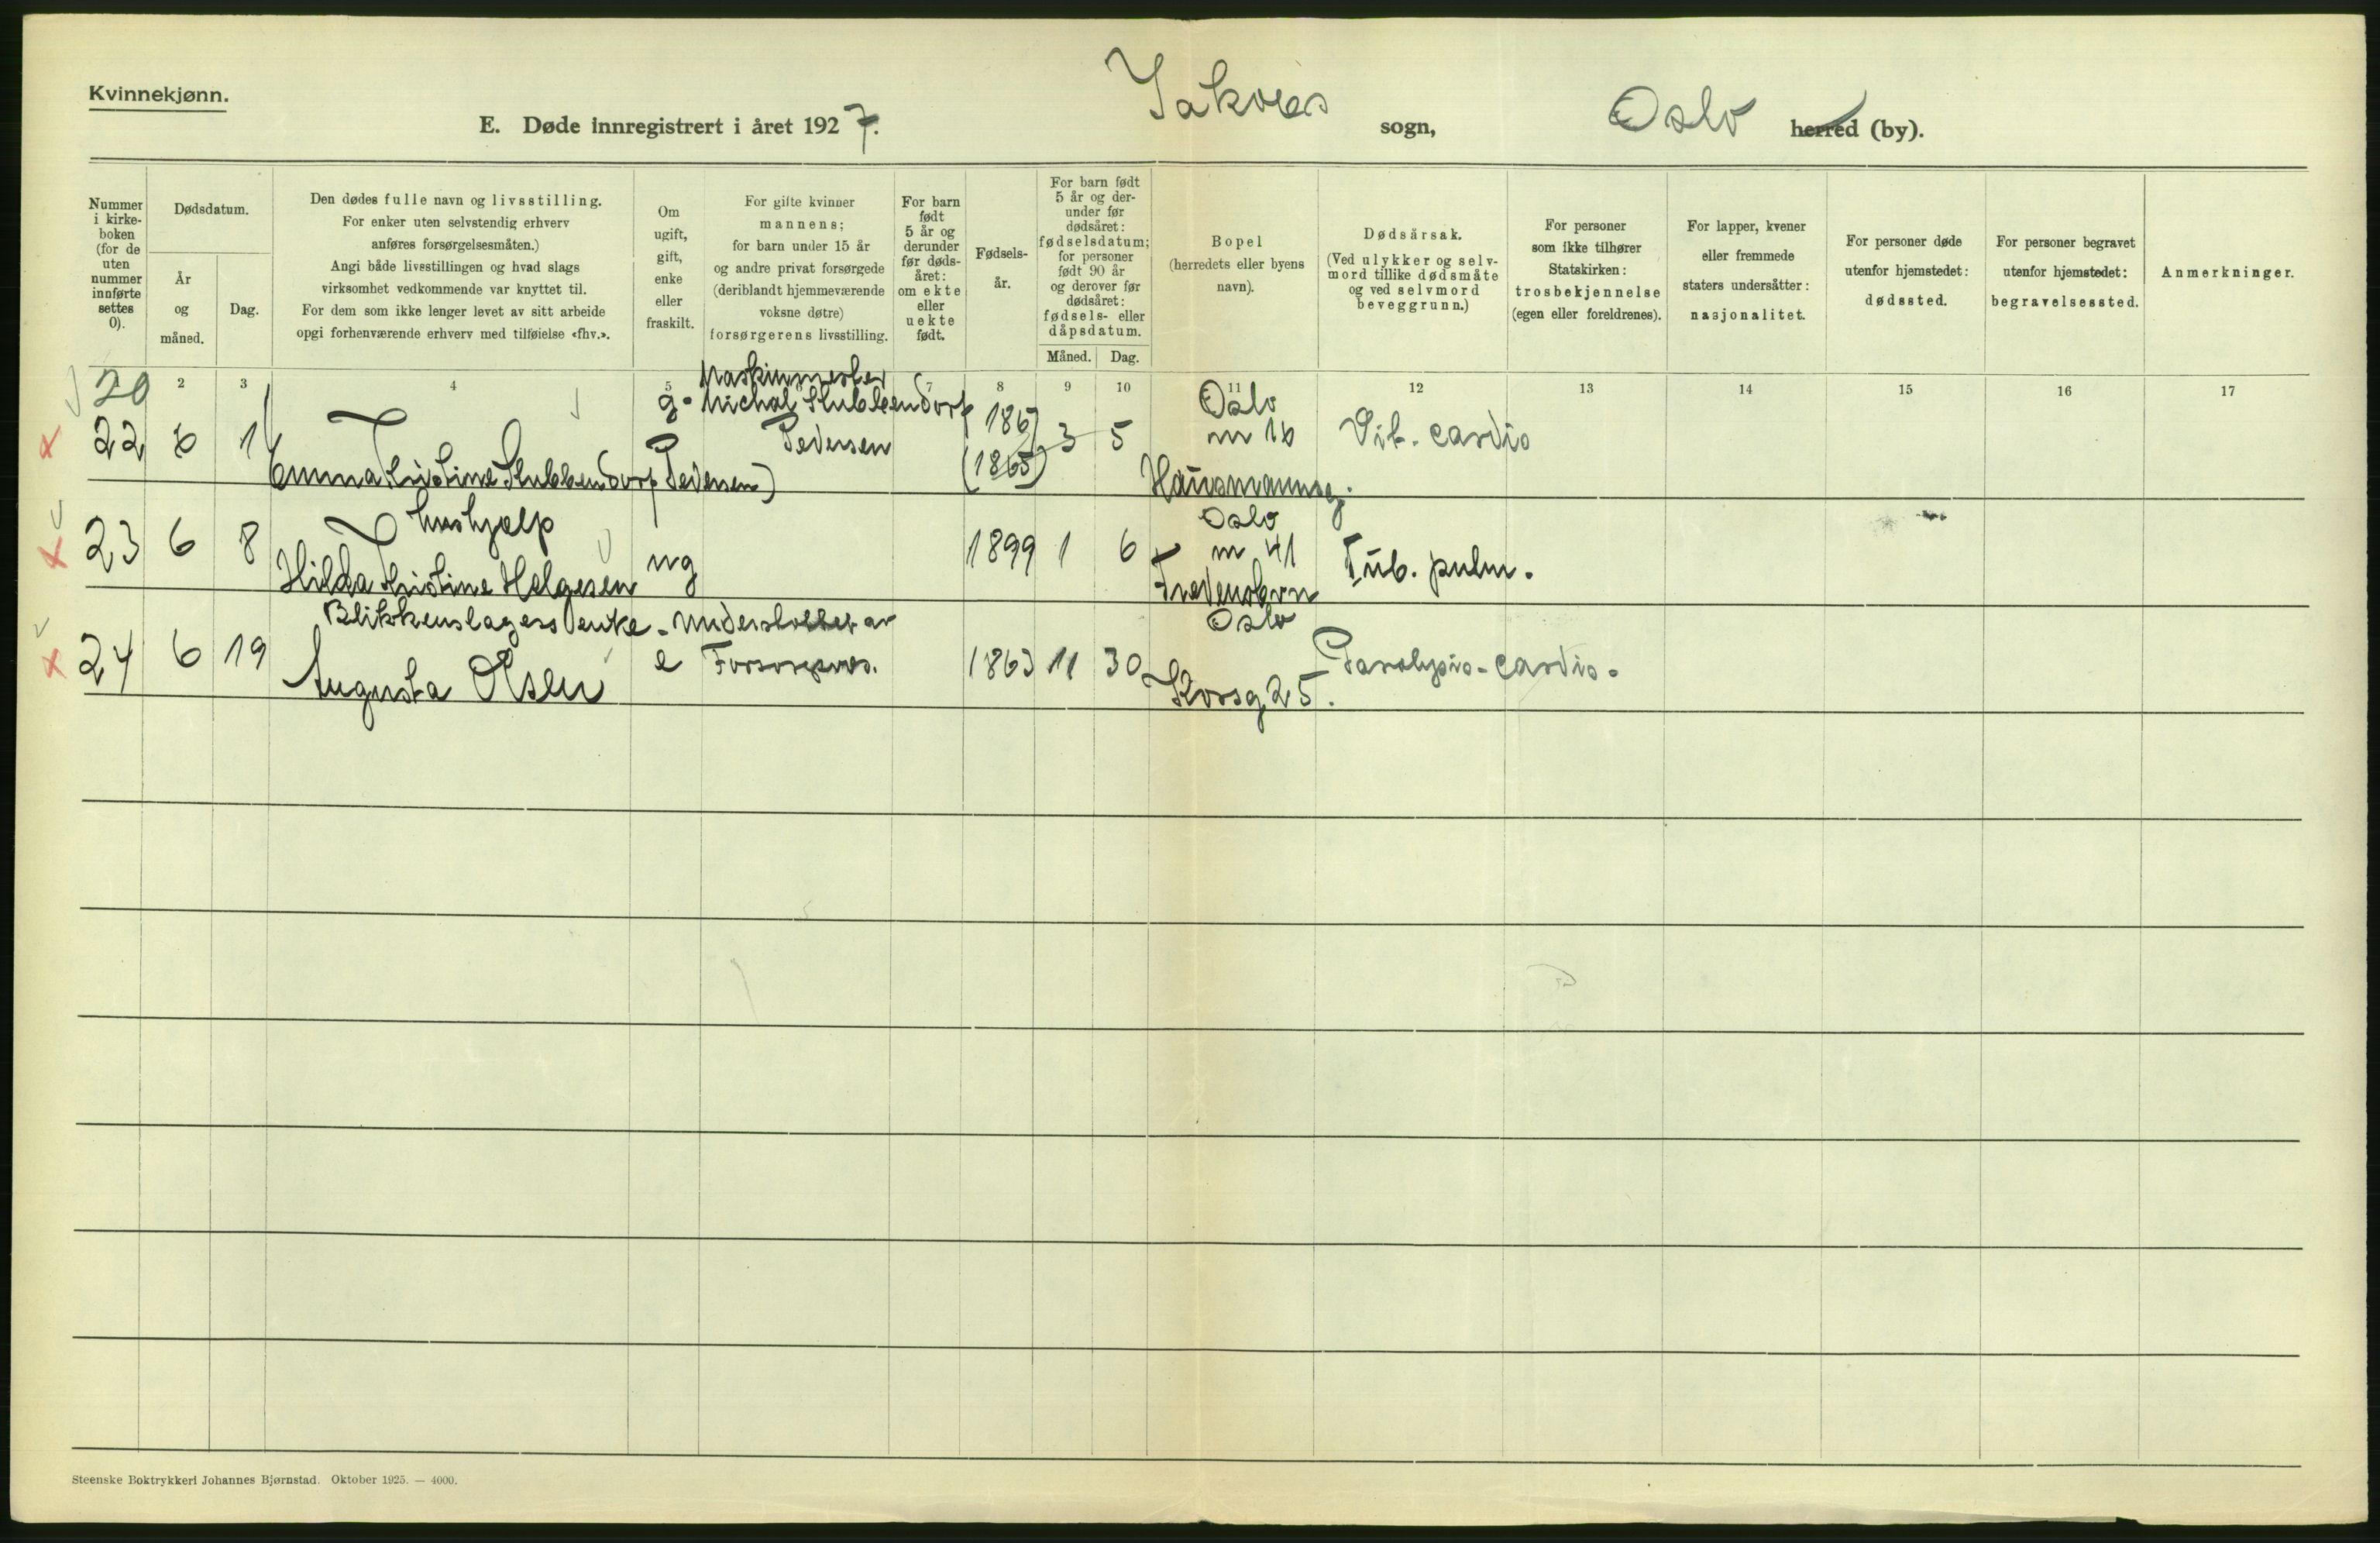 Kvinnekjønn.
E. Døde innregistrert i året 1927.
Jakobs sogn,
Oslo herred (by).
Nummer i kirkeboken (for de uten nummer innførte settes 0).
Dødsdatum.
År og måned.
Dag.
Den dødes fulle navn og livsstilling.
For enker uten selvstendig erhverv
anføres forsørgelsesmåten.)
Angi både livsstillingen og hvad slags
virksomhet vedkommende var knyttet til.
For dem som ikke lenger levet av sitt arbeide
opgi forhenværende erhverv med tilføielse «fhv.».
Om
ugift,
gift,
enke
eller
fraskilt.
For gifte kvinner
mannens;
for barn under 15 år
og andre privat forsørgede
(deriblandt hjemmeværende
voksne døtre)
forsørgerens livsstilling.
For barn
født
5 år og
derunder
før døds-
året:
om ekte
eller
uekte
født.
Fødsels-
år.
For barn født
5 år og der-
under før
dødsåret:
fødselsdatum;
for personer
født 90 år
og derover før
dødsåret:
fødsels- eller
dåpsdatum.
Måned. Dag.
Bopel
(herredets eller byens
navn).
Dødsårsak.
(Ved ulykker og selv-
mord tillike dødsmåte
og ved selvmord
beveggrunn.)
For personer
som ikke tilhører
Statskirken:
trosbekjennelse
(egen eller foreldrenes).
For lapper, kvener
eller fremmede
staters undersåtter:
nasjonalitet.
For personer døde
utenfor hjemstedet:
dødssted.
For personer begravet
utenfor hjemstedet:
begravelsessted.
Anmerkninger.
20 2 3 4 5 7 8 9 10 11 12 13 14 15 16 17
Maskinmester
g. Michal Stubbendorf
Pedersen
22 6 1
Emma Kristine Stubbendorf Pedersen)
1867
(1865)
3 5
Oslo
nr 16
Hausmannsg.
Vit. cordis
23 6 8
hushjelp
Hilda Kristine Helgesen
ug
1899 1 6
Oslo
nr 41
Fredensborg
Tub. pulm.
24 6 19
Blikkenslagers enke - Understøttet av
Augusta Olsen
e
Forsorgsves.
1863 11 30
Oslo
Korsg 25.
Paralysis - cordis.
Steenske Boktrykkeri Johannes Bjørnstad. Oktober 1925. — 4000.